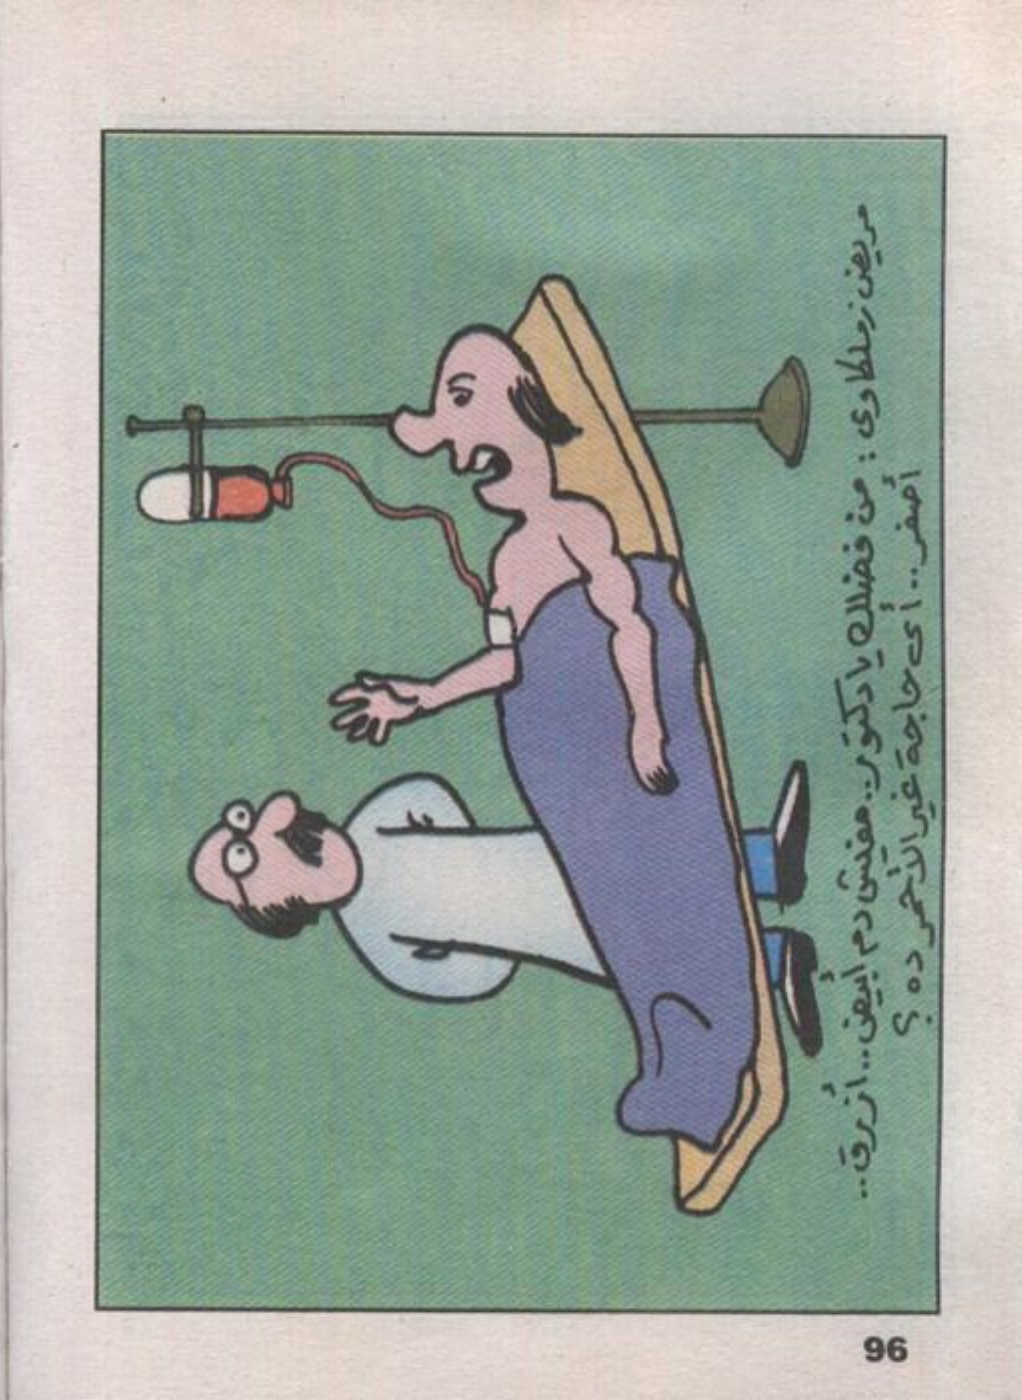 مريض زملكاوى : من فضلك يا دكتور.. مفيش دم أبيض.. أزرق..
أصفر.. أى حاجة غير الأحمر ده ؟
96